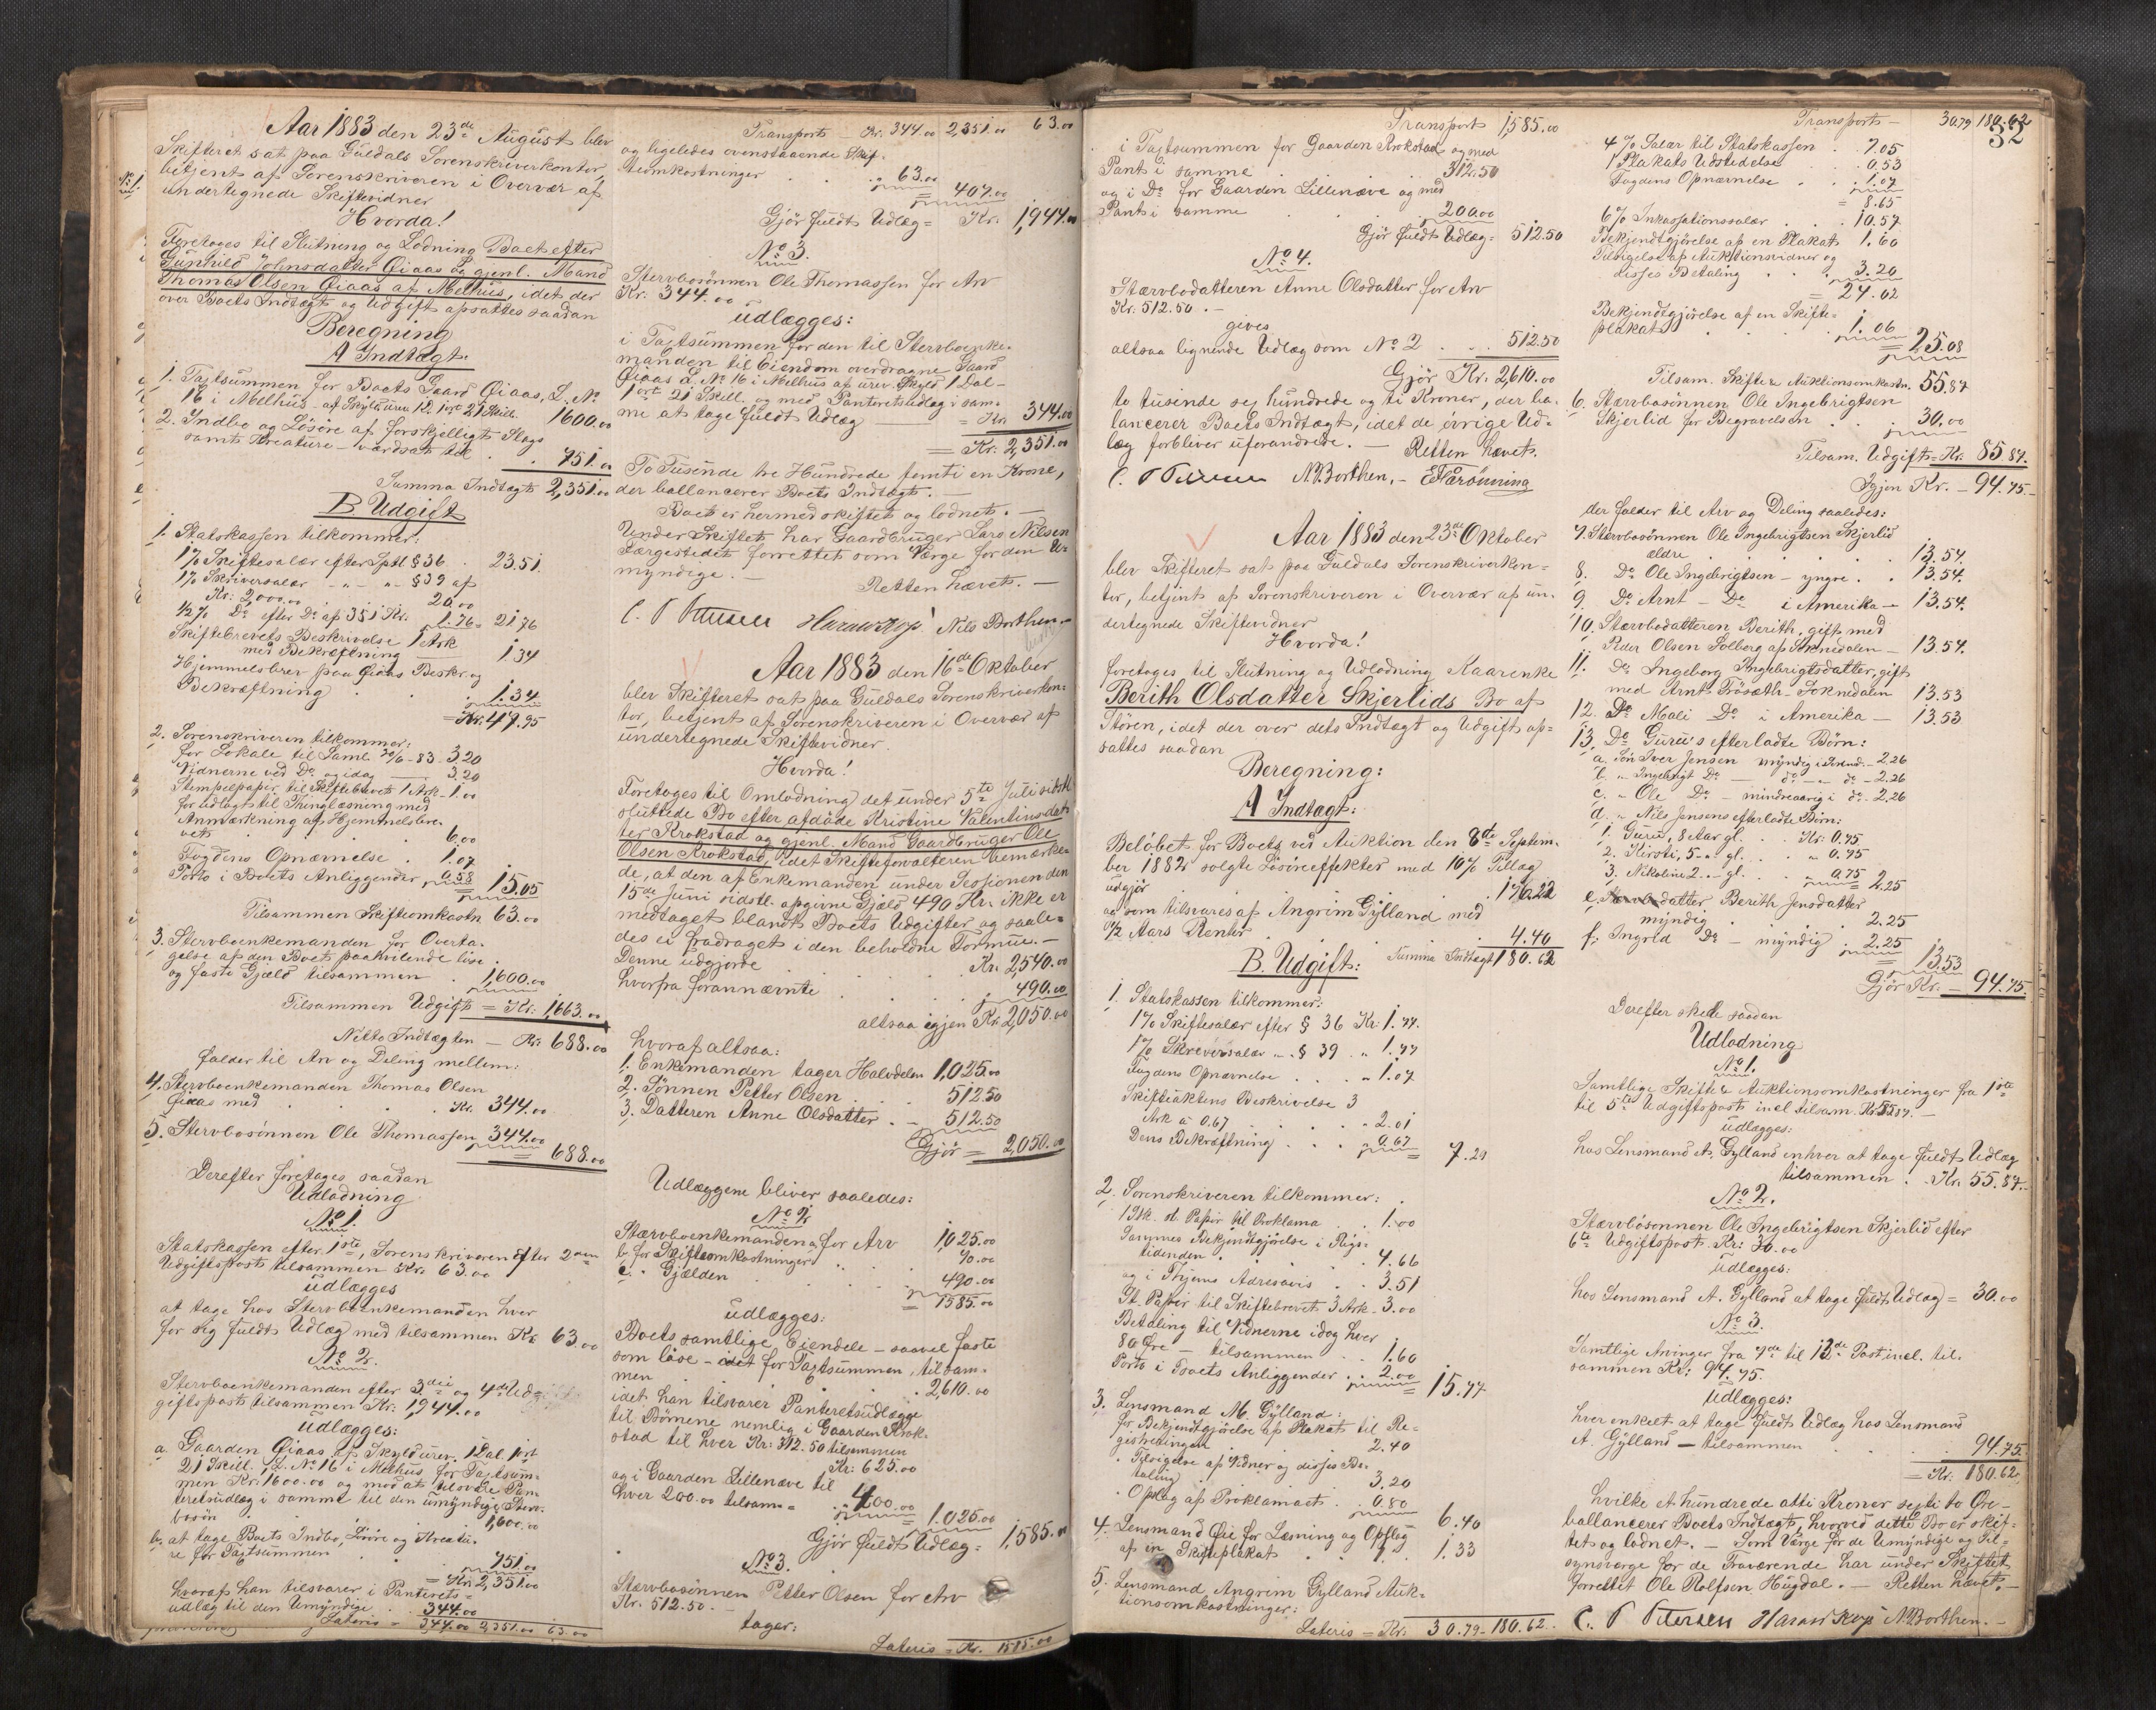 Aar 1883 den 23de August blev
Skifteret sat paa Guldals Sorenskriverkontor,
No 1. betjent af Sorenskriveren i Overvær af
undertegnede Skiftevidner
Hvorda!
Foretoges til Slutning og Lodning Boet efter
Gunhild Johnsdatter Øiaas og gjenl. Mand
Thomas Olsen Øiaas af Melhus, idet der
over Boets Indtægt og Udgift afsattes saadan
Beregning
A Indtægt.
1. Taxtsummen for Boets Gaard Øiaas, L. No
16 i Melhus af Skyld urev. 1 D. 1 ort 21 Skill. 1600.00
2. Indbo og Løsøre af forskjelligt Slags
samt Kreature - værdsat til . . 751.00
Summa Indtægt 2,351.00
B. Udgift
1. Statskassen tilkommer:
1% Skiftesalær efter Sptl § 36 . 23.51.
1% Skriversalær - " - " - § 39 af
Kr: 2,000.00 . . . 20.00
1/2% Do efter Do af 351 Kr. 1.76 = 21.76
Skiftebrevets Beskrivelse 1 Ark
med Bekræftning . . 1.34
Hjemmelsbrev paa Øiaas Beskr. og
Bekræftning . . . 1.34
= Kr. 47.95
2. Sorenskriveren tilkommer:
for Lokale til Saml. - 83 - 3.20
Vidnerne ved Do og idag — 3.20
Stempelpapir til Skiftebrevet 1 Ark - 1.00
for udlagt til Thinglæsning med
Anmærkning af Hjemmelsbre-
vet . . . 6.00
Fogdens Opnævnelse . 1.07
Porto i Boets Anliggender 0.58 = 15.05
Tilsammen Skifteomkostn. 63.00
3. Stervboenkemanden for Overta-
gelse af den Boets paahvilende løse
og faste Gjæld tilsammen . 1,600.00
Tilsammen Udgift = Kr. 1,663.00
Netto Indtægten — Kr. 688.00
falder til Arv og Deling mellem:
4. Stervboenkemanden Thomas Olsen
Øiaas med . . . Kr. 344.00
5. Stervbosønnen Ole Thomassen 344.00
= 688.00
Derefter foretages saadan
Udlodning
No 1.
Statskassen efter 1ste, Sorenskriveren efter 2den
Udgiftspost tilsammen Kr. 63.00
udlægges
at tage hos Stervboenkemanden hver
for sig fuldt Udlæg med tilsammen Kr. 63.00
No 2.
Stervboenkemanden efter 3die og 4de Ud-
giftspost tilsammen Kr. 1,944.00
udlægges:
a. Gaarden Øiaas af Skyld urev. 1 Dal. 1 ort
21 Skill., L. No 16 i Melhus for Taxtsum-
men Kr. 1600.00 og mod at tilsvare Pan-
teretsudlæg i samme til den umyndige Sterv-
bosøn . . . 1,600.00
b. at tage Boets Indbo, Løsøre og Kreatu-
re for Taxtsummen . . 751.00
= Kr. 2,351.00
hvoraf han tilsvarer i Panterets-
udlæg til den Umyndige . 344.00
Lateris - 344.00 2,351.00 63.00
Transport — Kr. 344.00 2,351.00 63.00
og ligeledes ovenstaaende Skif-
teomkostninger . . 63.00
= 407.00
Gjør fuldt Udlæg = Kr. 1,944.00
No 3.
Stervbosønnen Ole Thomassen for Arv
Kr. 344.00
udlægges:
i Taxtsummen for den til Stervboenke-
manden til Eiendom overdragne Gaard
Øiaas L. No 16 i Melhus af urev. Skyld 1 Dal-
1 ort 21 Skill. og med Panteretsudlæg i sam-
me at tage fuldt Udlæg — = Kr. 344.00
= Kr. 2,351.00
To Tusinde tre Hundrede femti en Krone,
der ballancerer Boets Indtægt. —
Boet er hermed skiftet og lodnet. —
Under Skiftet har Gaardbruger Lars Nilsen
Bærgestedet forrettet som Værge for den U-
myndige. —
Retten hævet. —
C. P. Petersen Nils Borthen.
Aar 1883 den 16de Oktober
blev Skifteret sat paa Guldals Sorenskriverkon-
tor, betjent af Sorenskriveren i Overvær af
undertegnede Skiftevidner.
Hvorda!
Foretoges til Omlodning det under 5te Juli sidstl.
sluttede Bo efter afdøde Kristine Valentinsdat-
ter Krokstad og gjenl. Mand Gaardbruger Ole
Olsen Krokstad, idet Skifteforvalteren bemærke-
de, at den af Enkemanden under Sessionen den
15de Juni sidstl. opgivne Gjæld 490 Kr. ikke er
medtaget blandt Boets Udgifter og saale-
des ei fradraget i den beholdne Formue. —
Denne udgjorde . . Kr. 2,540.00
hvorfra forannævnte . . . 490.00
altsaa igjen Kr. 2,050.00
hvoraf altsaa:
1. Enkemanden tager Halvdelen 1,025.00
2. Sønnen Petter Olsen . . . 512.50
3. Datteren Anne Olsdatter . - 512.50
Gjør = 2,050.00
Udlæggene bliver saaledes:
No 2
Stærvboenkemanden a. for Arv 1,025.00
b. for Skifteomkostninger . . 70.00
c. " Gjælden . . . 490.00
= 1585.00
udlægges:
Boets samtlige Eiendele - saavel faste
som løse - idet for Taxtsummen, tilsam-
men . . . 2,610.00
idet han tilsvarer Panteretsudlægge
til Børnene nemlig i Gaarden Krok-
stad til hver Kr: 312.50 tilsammen
Kr: 625.00
og i Gaarden Lillenæve til
hver 200.00 tilsam. = 400.00
= 1,025.00
Gjør fuldt Udlæg = 1,585.00
No 3.
Stærvbosønnen Petter Olsen for Arv
Kr. 512.50. —
tager:
Lateris = Kr. 1585.00
Transport 1,585.00
i Taxtsummen for Gaarden Krokstad og med
Pant i samme . . . 312.50
og i Do for Gaarden Lillenæve og med
Pant i samme . . . 200.00
Gjør fuldt Udlæg = 512.50
No 4.
Stærvbodatteren Anne Olsdatter for Arv
Kr. 512.50. -
gives
altsaa lignende Udlæg som No 2 . . . 512.50
Gjør Kr. 2,610.00
to tusinde sex hundrede og ti Kroner, der ba-
lancerer Boets Indtægt, idet de øvrige Ud-
læg forbliver uforandrede. — Retten hævet.
C. P. Petersen N. Borthen. —
Aar 1883 den 23de Oktober
blev Skifteret sat paa Guldals Sorenskriverkon-
tor, betjent af Sorenskriveren i Overvær af un-
dertegnede Skiftevidner
Hvorda!
foretoges til Slutning og Udlodning Kaarenke
Berith Olsdatter Skjerlids Bo af
Støren, idet der over dets Indtægt og Udgift af-
sattes saadan
Beregning:
A Indtægt:
Beløbet for Boets ved Auktion den 8de Septem-
ber 1882 solgte Løsøreeffekter med 10% Tillæg
udgjør . . . 176.22
og som tilsvares af Angrim Gylland med
1/2 Aars Renter . . . 4.40
Summa Indtægt 180.62
B. Udgift:
1. Statskassen tilkommer:
1% Skiftesalær efter § 36 Kr. 1.77.
1% Skriversalær " . § 39 . " 1.77
Fogdens Opnævnelse . . . " 1.07
Skifteaktens Beskrivelse 3
Ark a 0.67 . . . " 2.01
Dens Bekræftning . . . " 0.67
= 7.29
2. Sorenskriveren tilkommer:
1 Stk. st. Papir til Proklama . . 1.00
Sammes Bekjendtgjørelse i Rigs-
tidenden . . . 4.66
og i Thjems Adresavis . . 3.51
St. Papir til Skiftebrevet 3 Ark - 3.00
Betaling til Vidnerne idag hver
80 Øre — tilsammen . . 1.60
Porto i Boets Anliggender . . 2.00
= 15.77
3. Lensmand M. Gylland:
for Bekjendtgjørelse af Plakat til Re-
gistreringen . . . 2.40
" Tilsigelse af Vidner og disses Be-
taling . . . 3.20
" Opslag af Proklamaet . . 0.80
6.40
4. Lensmand Øie for Læsning og Opslag
af en Skifteplakat . . . 1.33
5. Lensmand, Angrim Gylland Auk-
tionsomkostninger:
Lateris = Kr. 30.79 - 180.62.
Transport — 30.79 180.62
32
4% Salær til Statskassen . 7.05
1 Plakats Udstedelse . . 0.53
Fogdens Opnævnelse . . . 1.07
= 8.65
6% Inkassationssalær . . . 10.57
Bekjendtgjørelse af en Plakat 1.60
Tilsigelse af Auktionsvidner og
disses Betaling . . . 3.20
= 24.02
Bekjendtgjørelse af en Skifte-
plakat . . . 1.06
= 25.08
Tilsam. Skifte & Auktionsomkostn. 55.87
6. Stærvbosønnen Ole Ingebrigtsen
Skjerlid for Begravelsen . . 30.00
Tilsam. Udgift = Kr. 85.87.
Igjen Kr. — 94.75. —
der falder til Arv og Deling saaledes:
7. Stærvbosønnen Ole Ingebrigtsen Skjerlid
ældre . . . 13.54.
8. Do Ole Ingebrigtsen - yngre . . 13.54.
9. Do Arnt — Do i Amerika — 13.54.
10. Stærvbodatteren Berith, gift med
Peder Olsen Solberg af Soknedalen — 13.54.
11. Do Ingeborg Ingebrigtsdatter, gift
med Arnt Fröseth - Soknedalen 13.53
12. Do Mali Do i Amerika — 13.53
13. Do Guru's efterladte Børn:
a. Søn Iver Jensen myndig i - 2.26
b. " Ingebrigt Do — do - " do - 2.26
c. " Ole Do - mindreaarig i do - 2.26
d. " Nils Jensens efterladte Børn:
1. Guru, 8 Aar gl. . . Kr: 0.75
2. Kirsti, 5 - " gl. . . " 0.75
3. Nikoline 2. - " gl. . . " 0.75
= 2.25
e. datter Berith Jensdatter
myndig . . . 2.25
f. Ingrid Do — myndig . 2.25
= 13.53
Gjør Kr. — 94.75.
Derefter skede saadan
Udlodning
No 1.
Samtlige Skifte & Auktionsomkostninger fra 1ste
til 5te Udgiftspost incl. tilsam. Kr. 55.87. —
udlægges:
hos Lensmand A. Gylland enhver at tage fuldt Udlæg
tilsammen . . Kr. 55.87.
No 2.
Stærvbosønnen Ole Ingebrigtsen Skjerlid efter
6te Udgiftspost Kr: 30.00
udlægges:
hos Lensmand A. Gylland at tage fuldt Udlæg = 30.00
No 3.
Samtlige Arvinger fra 7de til 13de Post incl. til-
sammen Kr: 94.75.
udlægges:
hver enkelt at tage fuldt Udlæg hos Lensmand
A. Gylland — tilsammen . . . 94.75.
= Kr. 180.62
hvilke et hundrede otti Kroner sexti to Øre
ballancerer Boets Indtægt, hvorved dette Bo er skif-
tet og lodnet. — Som Værge for de Umyndige og Til-
synsværge for de Fraværende har under Skiftet
forrettet Ole Rolfsen Hugdal. — Retten hævet. —
C. P. Petersen N. Borthen. —